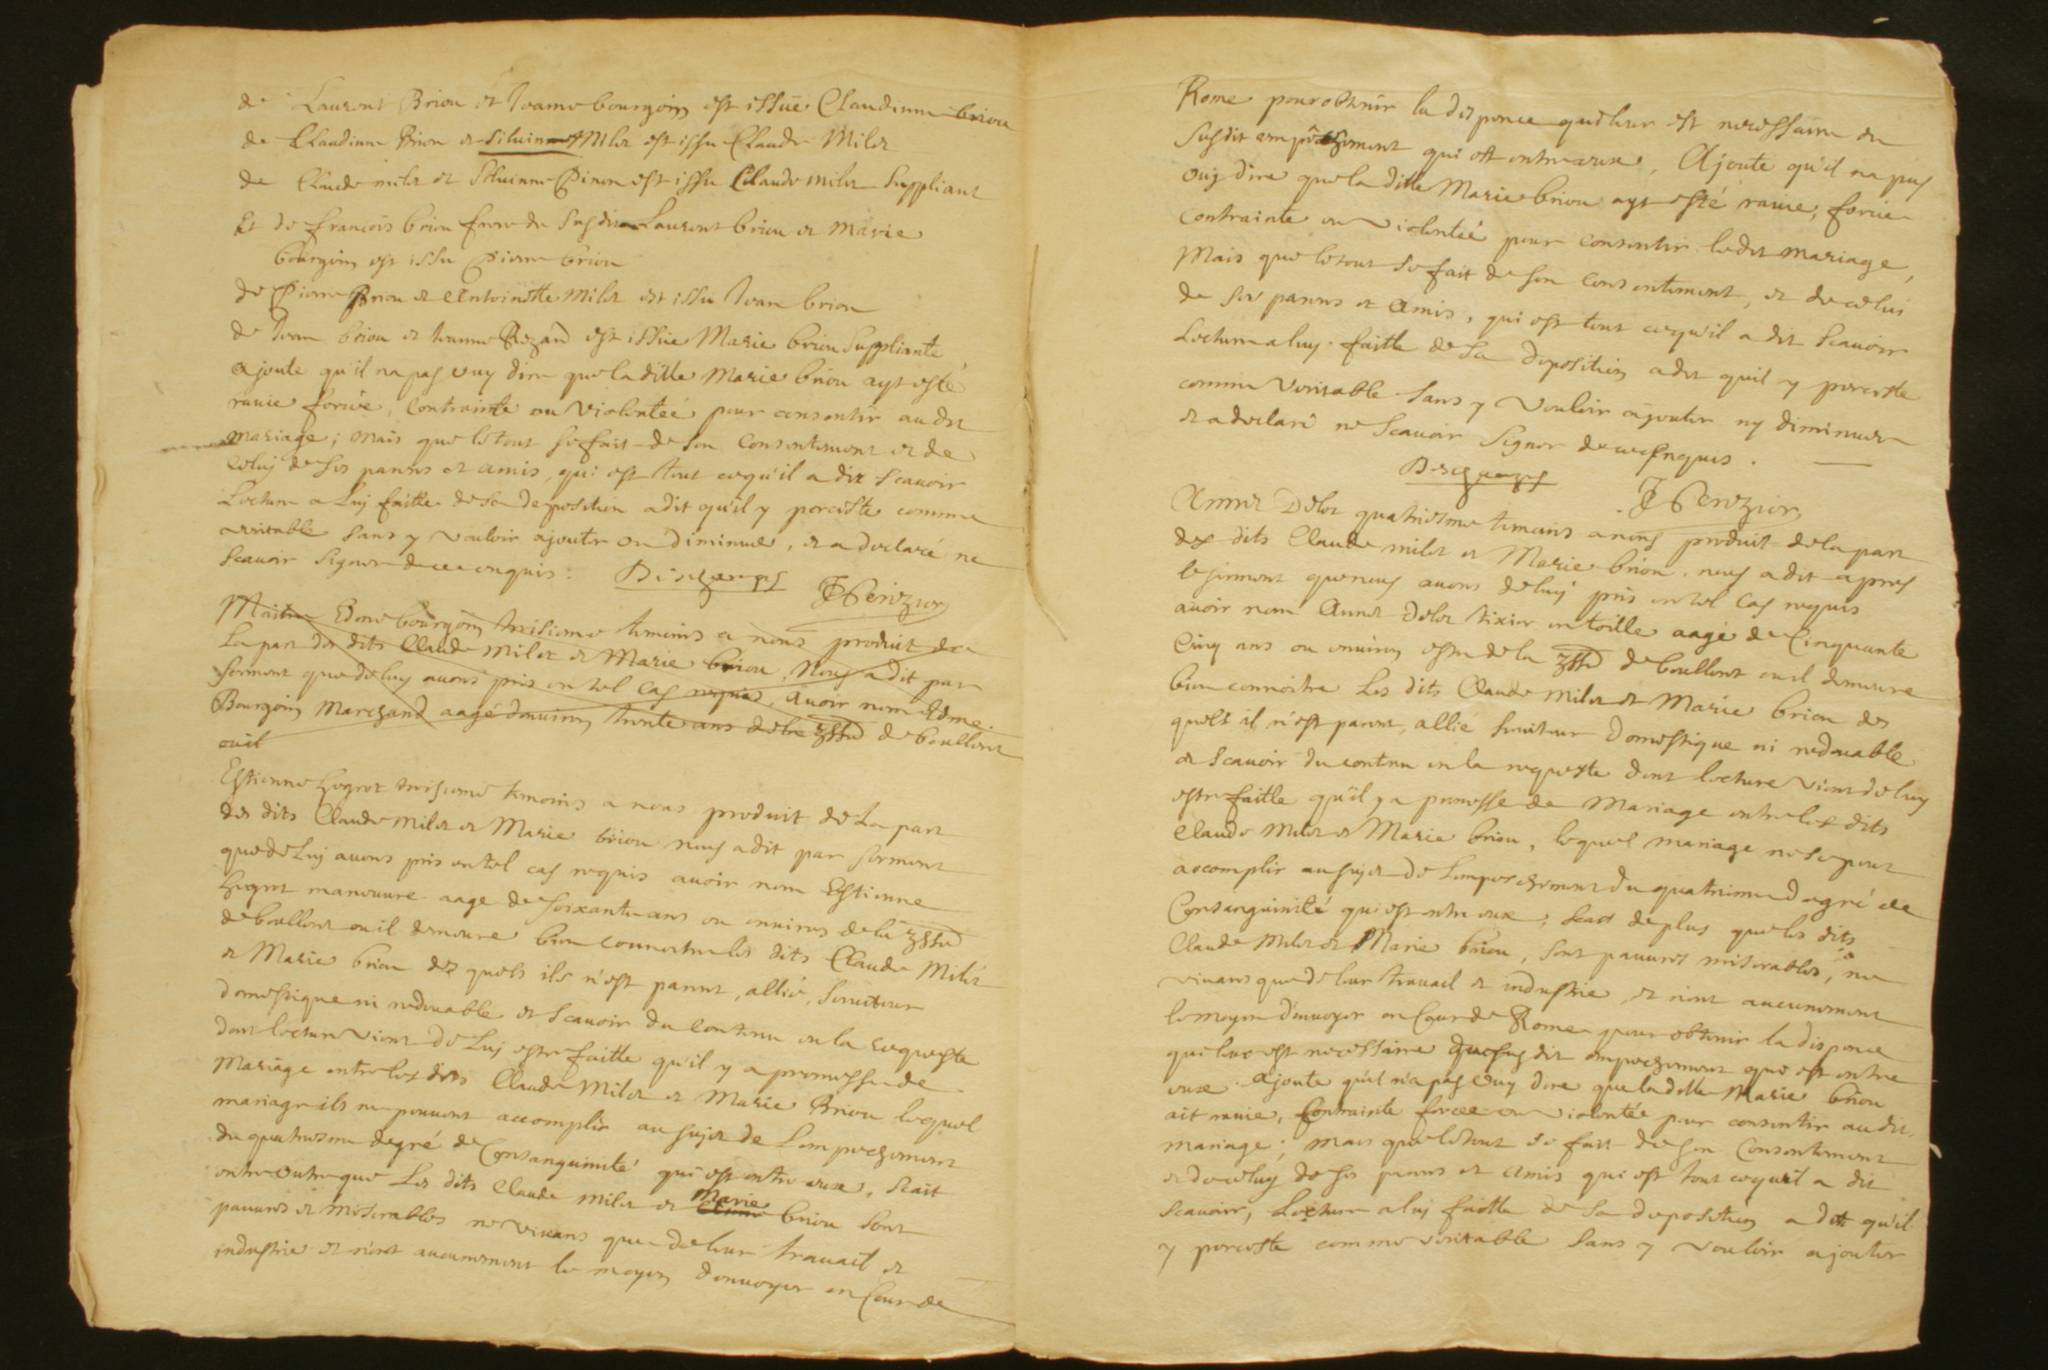 de Laurent Briou et Jeanne bourgoin est issüe Claudinne briou
de Claudinne Briou et Siluin Milet est issu Claude Milet
de Claude milet et Siluinne Pinon est issu Claude milet Suppliant
Et de francois briou frere du Susdit Laurent briou et Marie
bourgoin est issu Pierre briou
de Pierre Briou et Antoinette Milet est issu Jean briou
de Jean briou et Jeanne est issüe Marie briou Suppliante
ajoute qu'il na pas ouy dire que la ditte Marie briou ayt esté
rauie forcée, Contrainte ou Violentée pour consentir audit
mariage; mais que le tout se fait de son Consentement et de
Celuy de ses parens et amis, qui est tout ce qu'il a dit Scauoir
Lecture a Luy faitte de Sa deposition a dit qu'il y perciste comme
veritable sans y vouloir ajouter ou diminuer, et a declaré ne
Scauoir Signer de ce enquis:
Maitre Edme bourgoin troisieme temoins a nous produit de
La part des dits Claude milet et Marie briou, Nous a dit par
Serment que de luy auons pris en tel Cas requis, auoir nom Edme
Bourgoin Marchand aagé denuiron trente ans de la de boulleret
ou il
Estienne troisieme temoins a nous produit de La part
des dits Claude milet et Marie briou nous a dit par Serment
que de Luy auons pris en tel cas requis auoir nom Estienne
manouure aage de soixante ans ou enuiron de la
de boulleret ou il demeure bien connoitre les dits Claude Milet
et Marie briou des quels ils n'est parent, allié, Seruiteur
domestique ni redeuable et Scauoir du Contenu en la requeste
dont lecture vient de Luy estre faitte qu'il y a promesse de
Mariage entre les dits Claude Milet et Marie Briou lequel
mariage ils ne peuuent accomplir au sujet de L'empechement
du quatriesme degré de Consanguinité qui est entre eux, Scait
en outre que Les dits Claude milet et Marie briou sont
pauures et miserables ne viuans que de leur trauail et
industrie et n'ont aucunement le moyen d'enuoyer en Cour de
Rome pour obtenir la dispence qui leur est necessaire du
Susdit empêchement qui est entre eux, Ajoute qu'il na pas
ouy dire que la ditte Marie briou ayt esté rauie, forcée
contrainte ou violentée pour consentir ledit mariage,
Mais que le tout se fait de son consentement, et de celui
de ses parens et amis, qui est tout ce qu'il a dit Scauoir
Lecture a luy faitte de Sa deposition a dit quil y perciste
comme veritable Sans y vouloir ajouter ny diminuer
et a declaré ne Scauoir Signer de ce enquis.
Annet Delot quatriesme temoins a nous produit de la part
des dits Claude milet et Marie briou nous a dit apres
le Serment que nous auons de luy pris en tel Cas requis
auoir nom Annet Delot tixier en toille aagé de Cinquante
Cinq ans ou enuiron estre de la de boulleret ou il demeure
bien connoitre Les dits Claude Milet et Marie briou des
quels il n'est parent, allié Seruiteur domestique ni redeuable
et Scauoir du contenu en la requeste dont lecture vient de luy
estre faitte qu'il y a promesse de Mariage entre les dits
Claude Milet et Marie briou, lequel mariage ne se peut
accomplir au sujet de L'empeschement du quatrieme degré de
Consanguinité qui est entre eux; Scait de plus que les dits
Claude Milet et Marie briou, sont pauures miserables, ne
viuans que de leur trauail et industrie et n'ont aucunement
le moyen d'enuoyer en Cour de Rome pour obtenir la dispence
qui leur est necessaire du susdit empechement qui est entre
eux. Ajoute qu'il n'a pas ouy dire que la ditte Marie briou
ait rauie, Contrainte forcée ou violentée pour consentir audit
mariage; mais que le tout se fait de son Consentement
et de celuy de ses parens et amis qui est tout ce qu'il a dit
Scauoir, Lecture a luy faitte de Sa deposition a dit qu'il
y perciste comme veritable Sans y vouloir ajouter